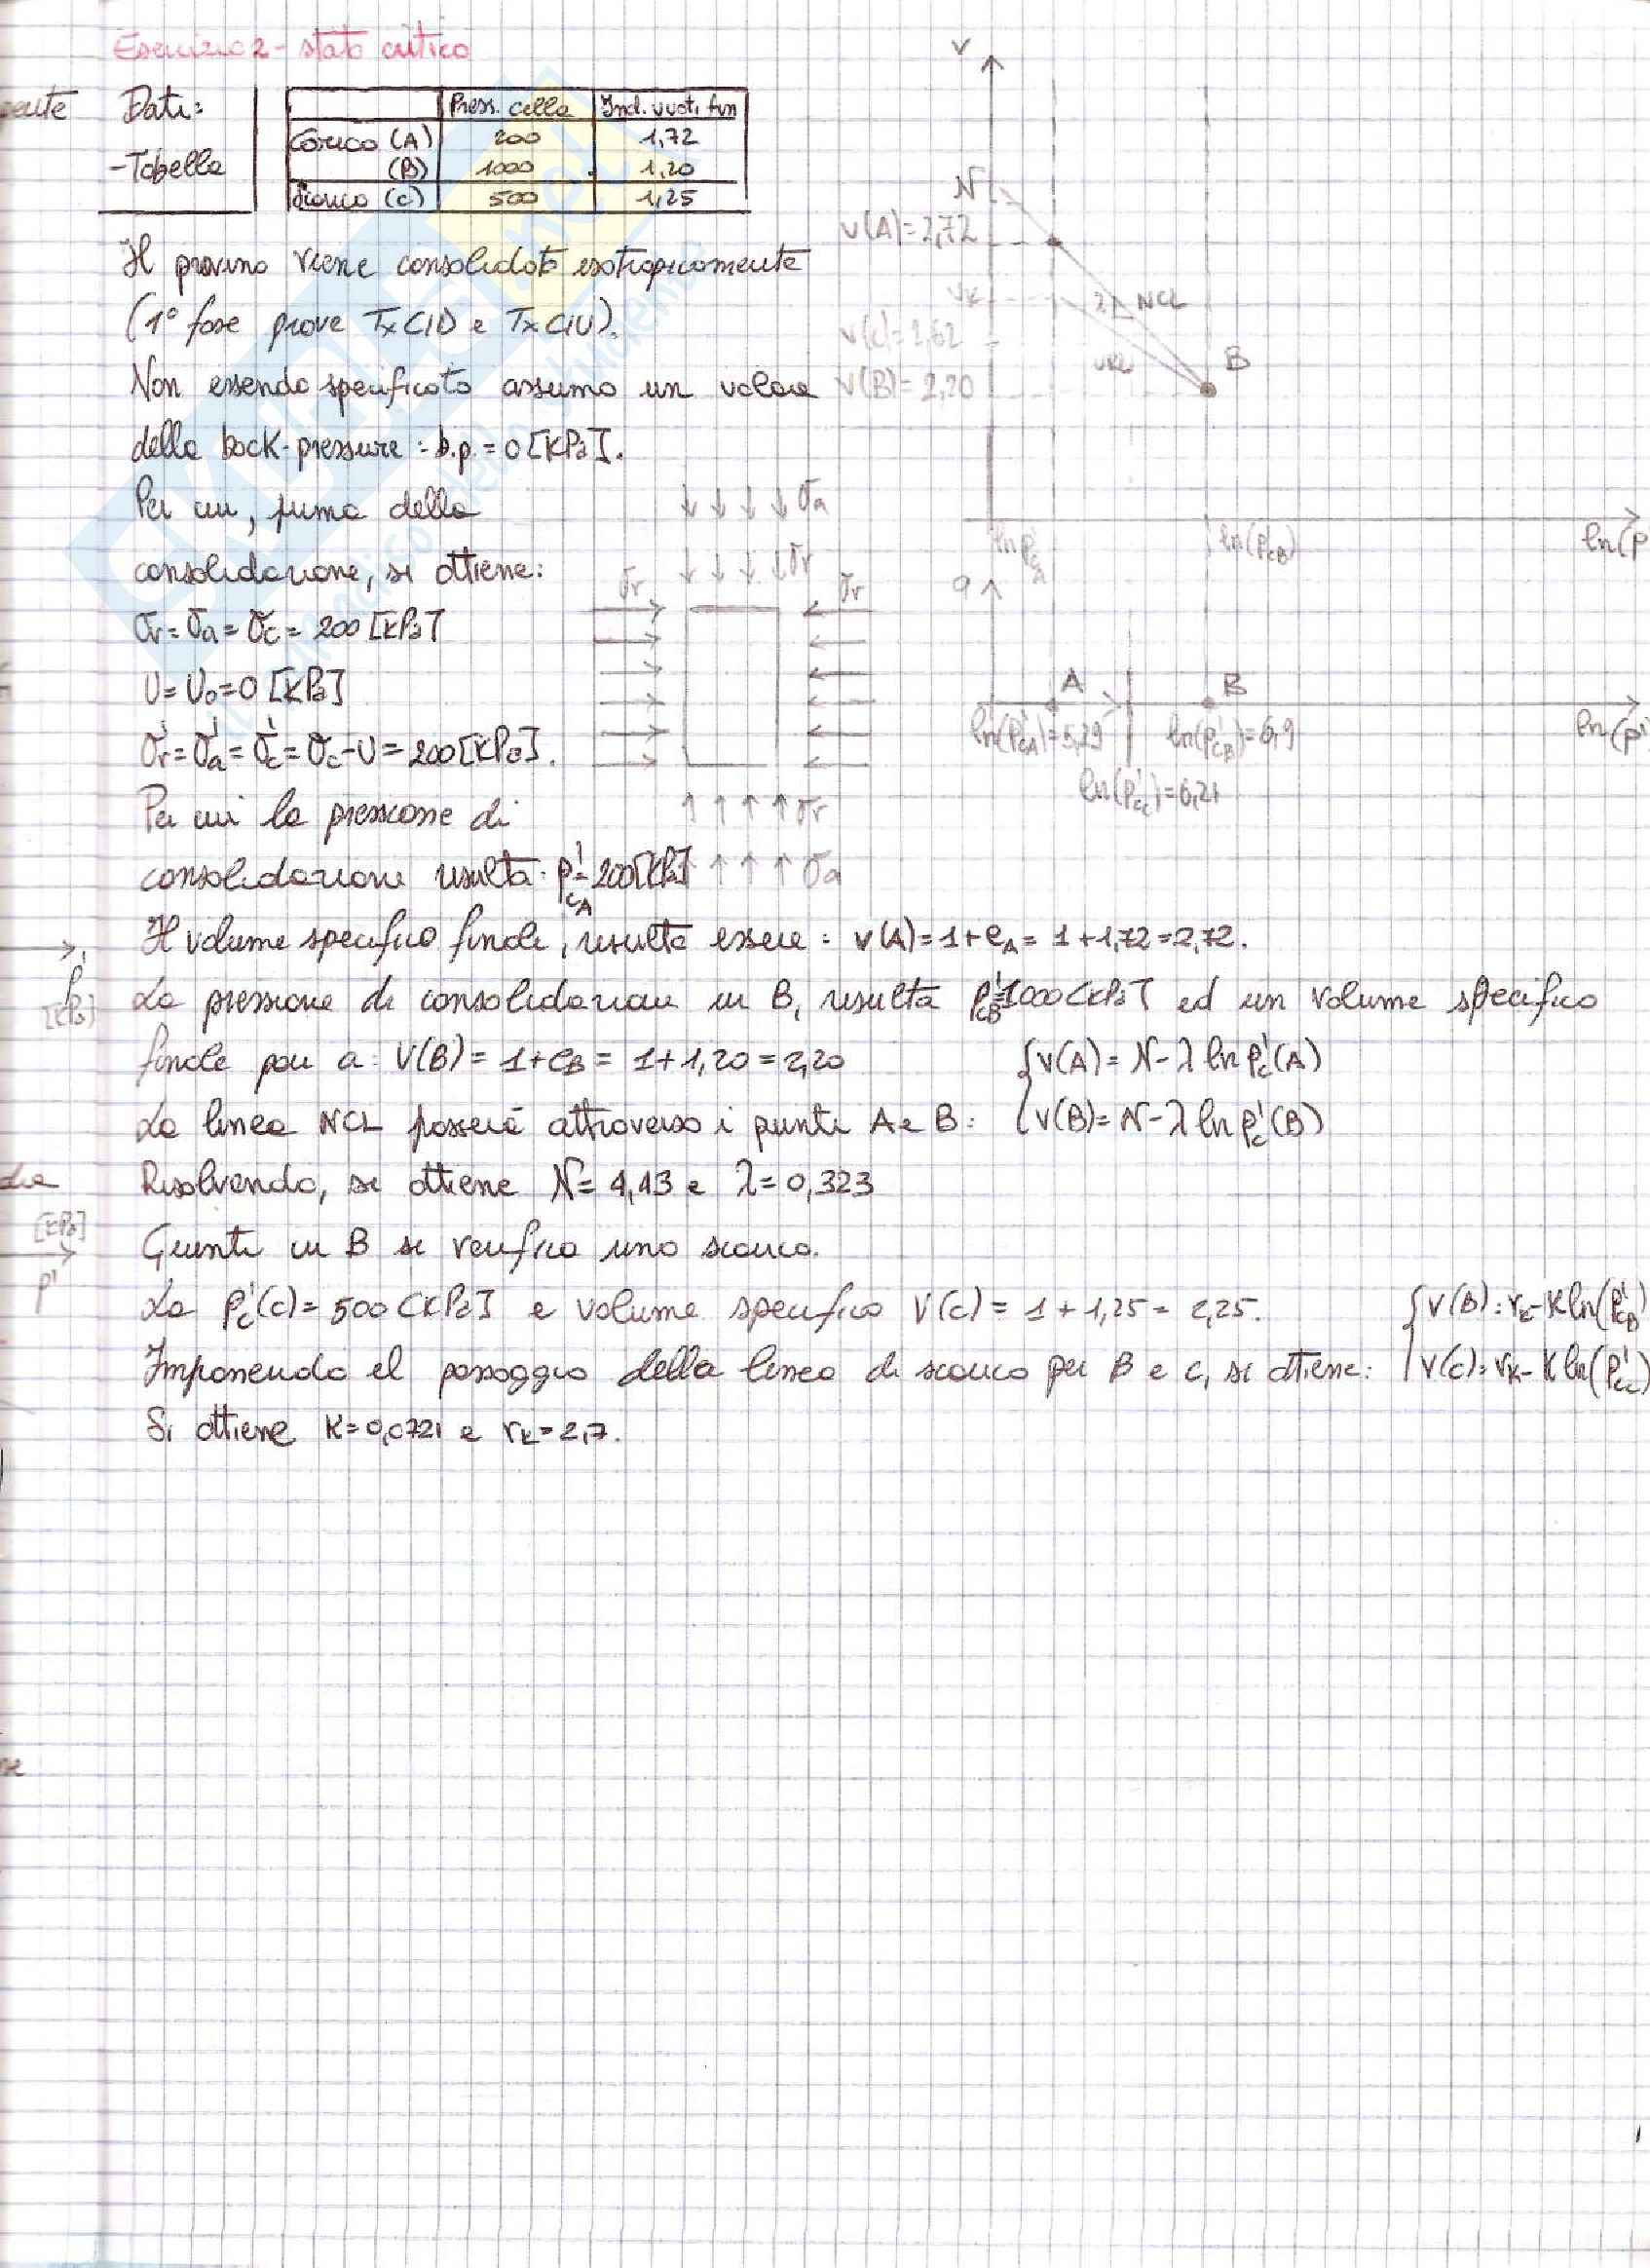 Esercizio 2 - stato critico
Dati:
-Tabella
Press. cella Ind. vuoti fin
Carico (A) 200 1,72
(B) 1000 1,20
Scarico (C) 500 1,25
Il provino viene consolidato isotropicamente
(1° fase prove TxCID e TxCIU).
Non essendo specificato assumo un valore
della back-pressure: b.p. = 0 [KPa].
Per cui, prima della
consolidazione, si ottiene:
σr = σa = σc = 200 [KPa]
U = U0 = 0 [KPa]
σ'r = σ'a = σ'c = σc - U = 200 [KPa].
Per cui la pressione di
consolidazione risulta: p'cA = 200 [KPa]
Il volume specifico finale, risulta essere: v(A) = 1 + eA = 1 + 1,72 = 2,72.
La pressione di consolidazione in B, risulta p'cB = 1000 [KPa] ed un volume specifico
finale pari a: V(B) = 1 + eB = 1 + 1,20 = 2,20
La linea NCL passerà attraverso i punti A e B:
{ v(A) = N - λ ln p'c(A)
{ v(B) = N - λ ln p'c(B)
Risolvendo, si ottiene N = 4,43 e λ = 0,323
Giunti in B si verifica uno scarico.
La p'c(C) = 500 [KPa] e volume specifico V(C) = 1 + 1,25 = 2,25.
Imponendo il passaggio della linea di scarico per B e C, si ottiene:
{ V(B) = vk - K ln(p'cB)
{ V(C) = vk - K ln(p'cC)
Si ottiene K = 0,0721 e vk = 2,7.
v
N
v(A) = 2,72
vk
λ NCL
v(C) = 2,62
URL
B
v(B) = 2,20
ln p'cA
ln(p'cB)
ln(p
q
A
B
ln(p'cA) = 5,29
ln(p'cB) = 6,9
ln(p'
ln(p'cC) = 6,21
σa
σr
σr
σr
σr
σa
p'
[KPa]
[KPa]
p'